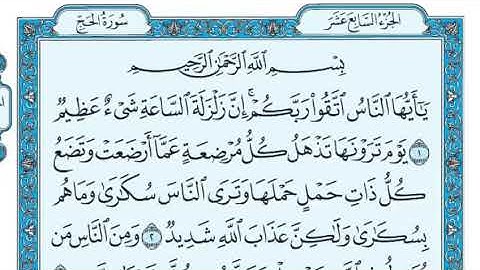 الجزء السابع عشر
سورة الحج
بِسْمِ اللَّهِ الرَّحْمَٰنِ الرَّحِيمِ
يَٰٓأَيُّهَا النَّاسُ اتَّقُوا۟ رَبَّكُمْ ۚ إِنَّ زَلْزَلَةَ السَّاعَةِ شَىْءٌ عَظِيمٌ
١ يَوْمَ تَرَوْنَهَا تَذْهَلُ كُلُّ مُرْضِعَةٍ عَمَّآ أَرْضَعَتْ وَتَضَعُ
كُلُّ ذَاتِ حَمْلٍ حَمْلَهَا وَتَرَى النَّاسَ سُكَٰرَىٰ وَمَا هُم
بِسُكَٰرَىٰ وَلَٰكِنَّ عَذَابَ اللَّهِ شَدِيدٌ ٢ وَمِنَ النَّاسِ مَن